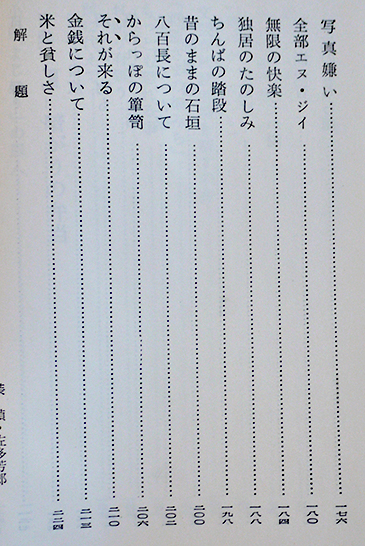 写真嫌い……一七六
全部エヌ・ジイ……一八〇
無限の快楽……一八四
独居のたのしみ……一八八
ちんばの踏段……一九八
昔のままの石垣……二〇〇
八百長について……二〇二
からっぽの簞笥……二〇六
それが来る……二一〇
金銭について……二一三
米と貧しさ……二二四
解題
装幀・佐多芳郎